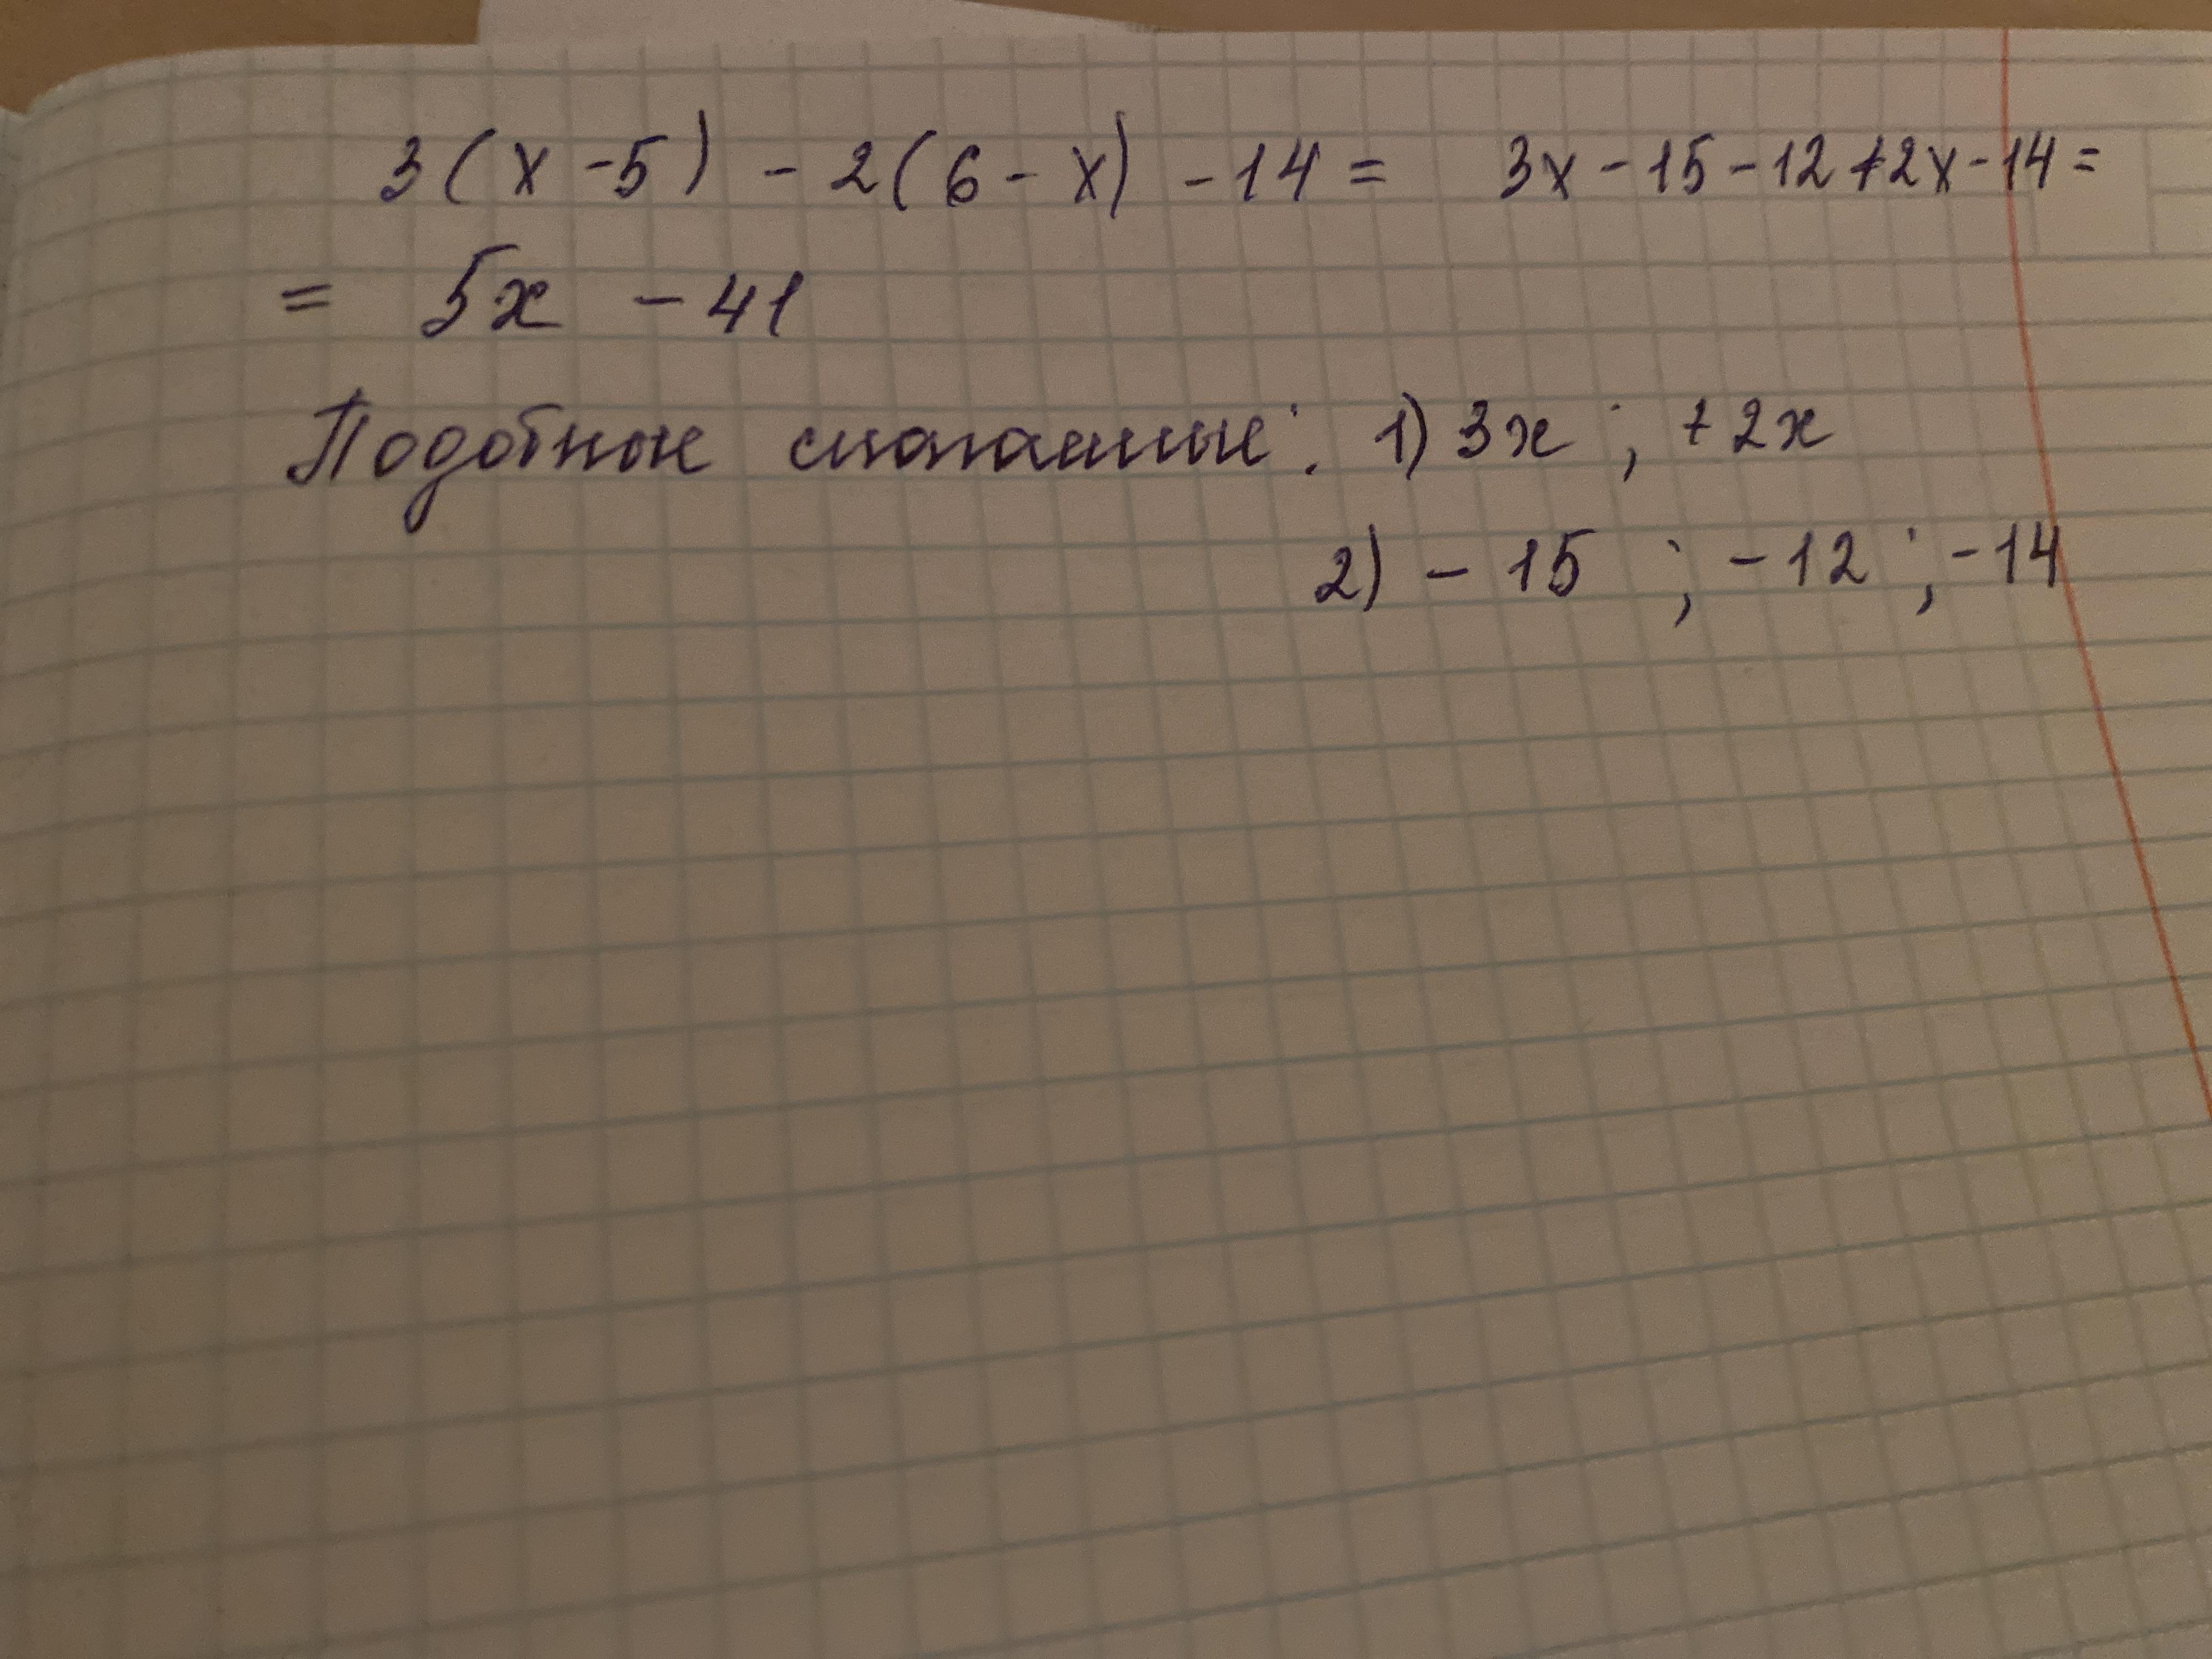 3(x-5) - 2(6-x) -14 = 3x-15-12+2x-14=
= 5x -41
Подобные слагаемые: 1) 3x ; +2x
2) -15 ; -12 ; -14